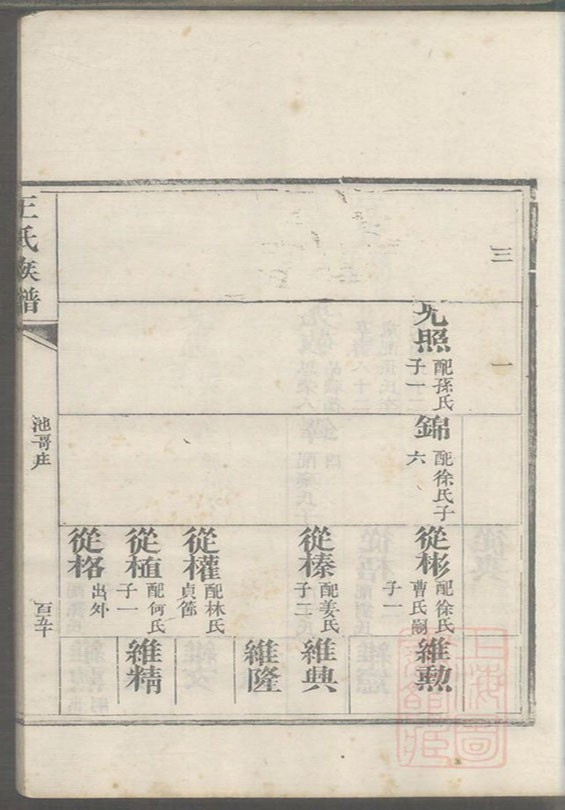 三
一
光照
配孫氏
子一
錦
配徐氏子
六
從彬
配徐氏
曹氏嗣
子一
維勲
從榛
配姜氏
子二
維興
維隆
從權
配林氏
貞節
從植
配何氏
子一
維精
從格
出外
王氏族譜
池哥庄
百五十